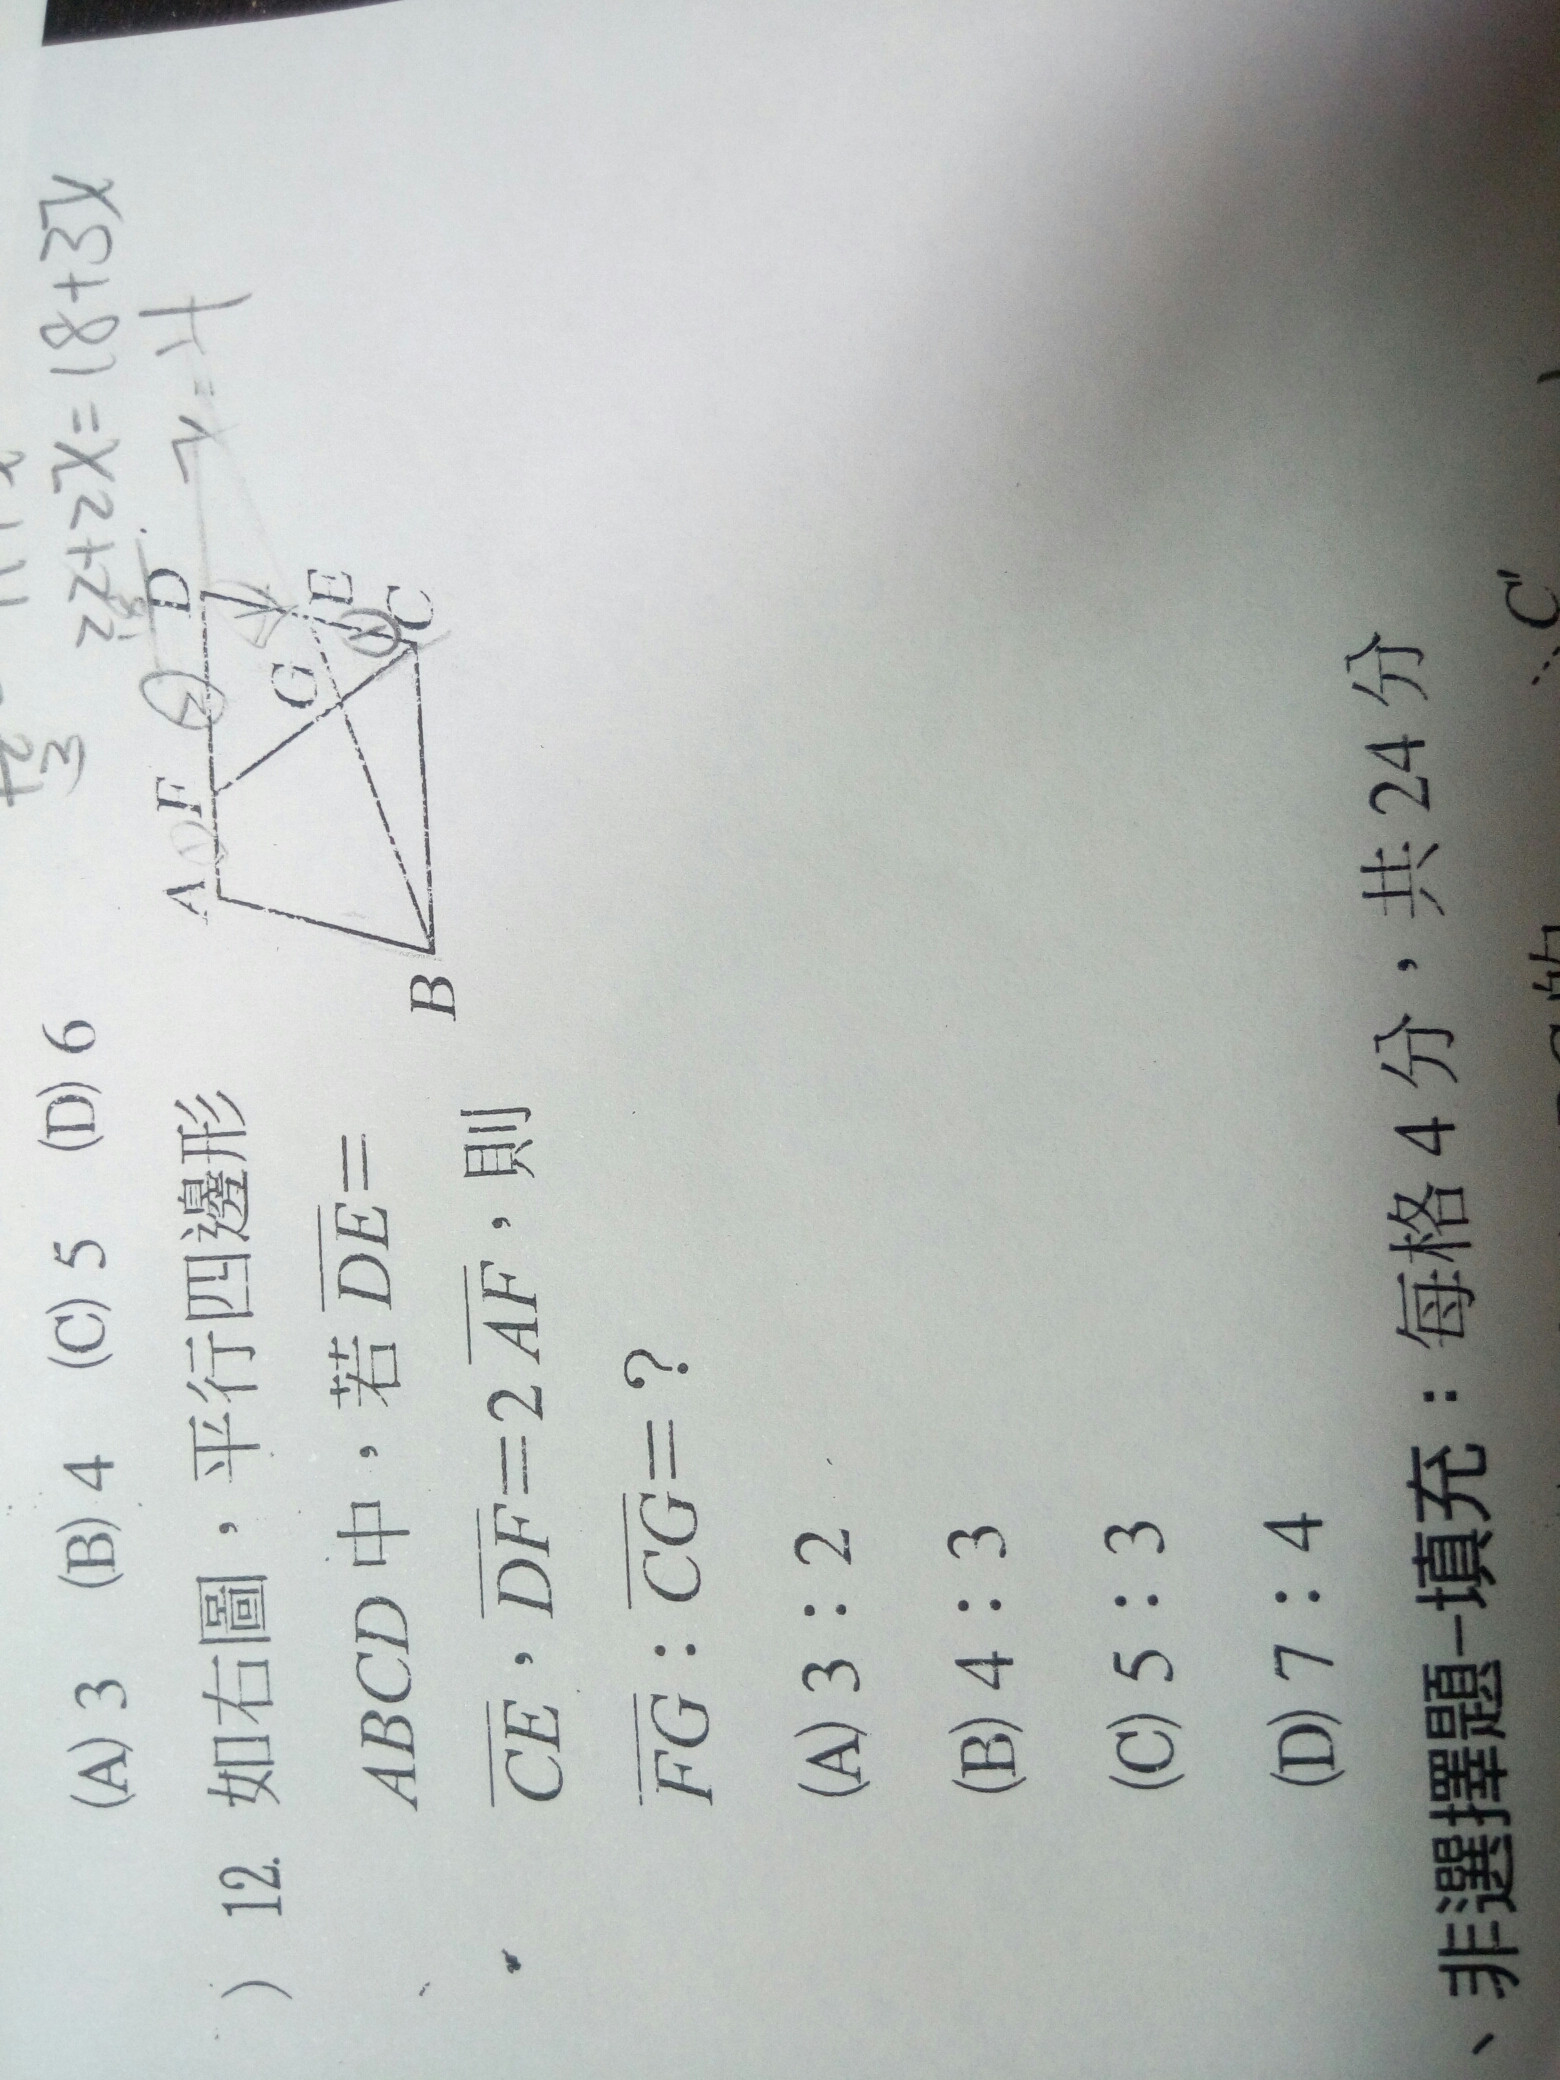 (A) 3 (B) 4 (C) 5 (D) 6
22+2x=18+3x
x=4
) 12. 如右圖，平行四邊形
ABCD 中，若 DE=
CE，DF=2AF，則
FG：CG=？
A F D
G E
B C
(A) 3：2
(B) 4：3
(C) 5：3
(D) 7：4
、非選擇題-填充：每格 4 分，共 24 分
C'